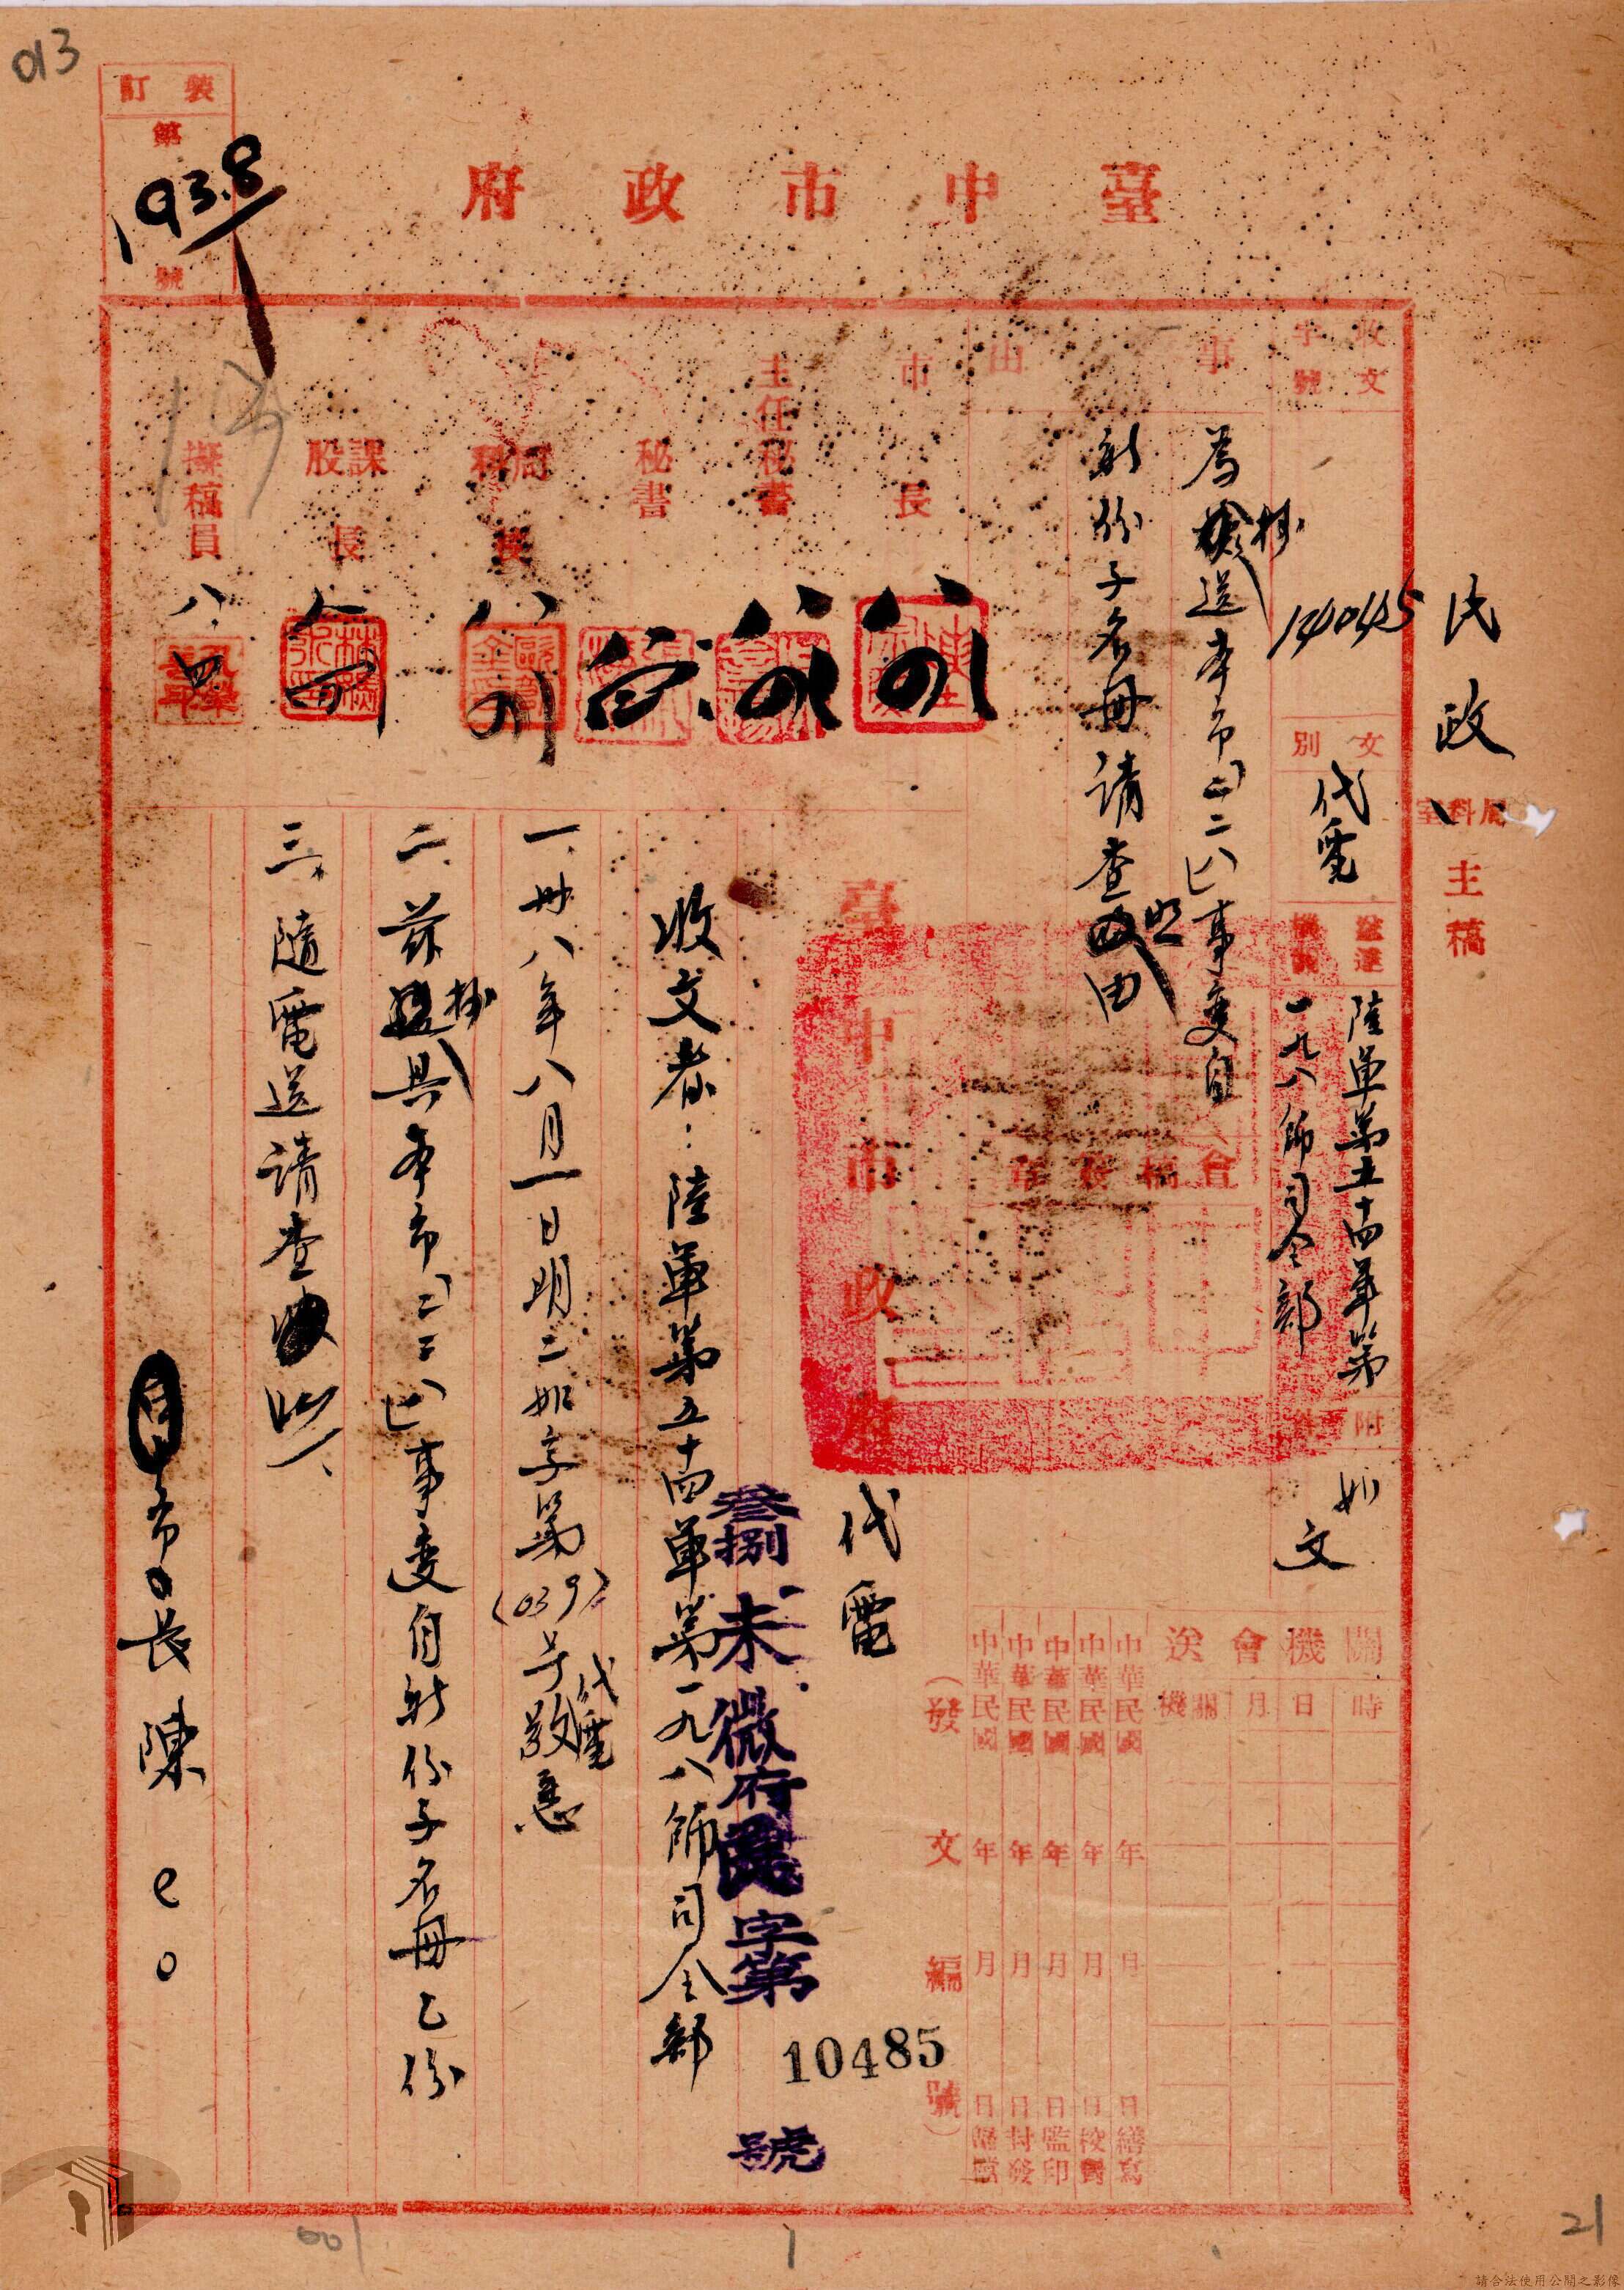 013
裝訂
第
193.8
號
臺中市政府
民政
局科室
主稿
收文
字號
140145
文別
代電
送達
機關
陸軍第五十四軍第
一九八師司令部
附件
如文
事由
為抄送本市「二二八」事變自
新份子名冊請查照由
市長
主任秘書
秘書
局科長
課股長
擬稿員
八、四
會稿
關機會送
時
日
月
機關
中華民國 年 月 日 繕寫
中華民國 年 月 日 校對
中華民國 年 月 日 監印
中華民國 年 月 日 封發
中華民國 年 月 日 歸檔
(發文編號)
臺中市政府
代電
叁捌未微府民字第
10485
號
收文者：陸軍第五十四軍第一九八師司令部
一、卅八年八月一日明二如字第(039)号代電敬悉
二、茲抄具本市「二二八」事變自新份子名冊乙份
三、隨電送請查照、
市長陳
001
1
21
請合法使用公開之影像